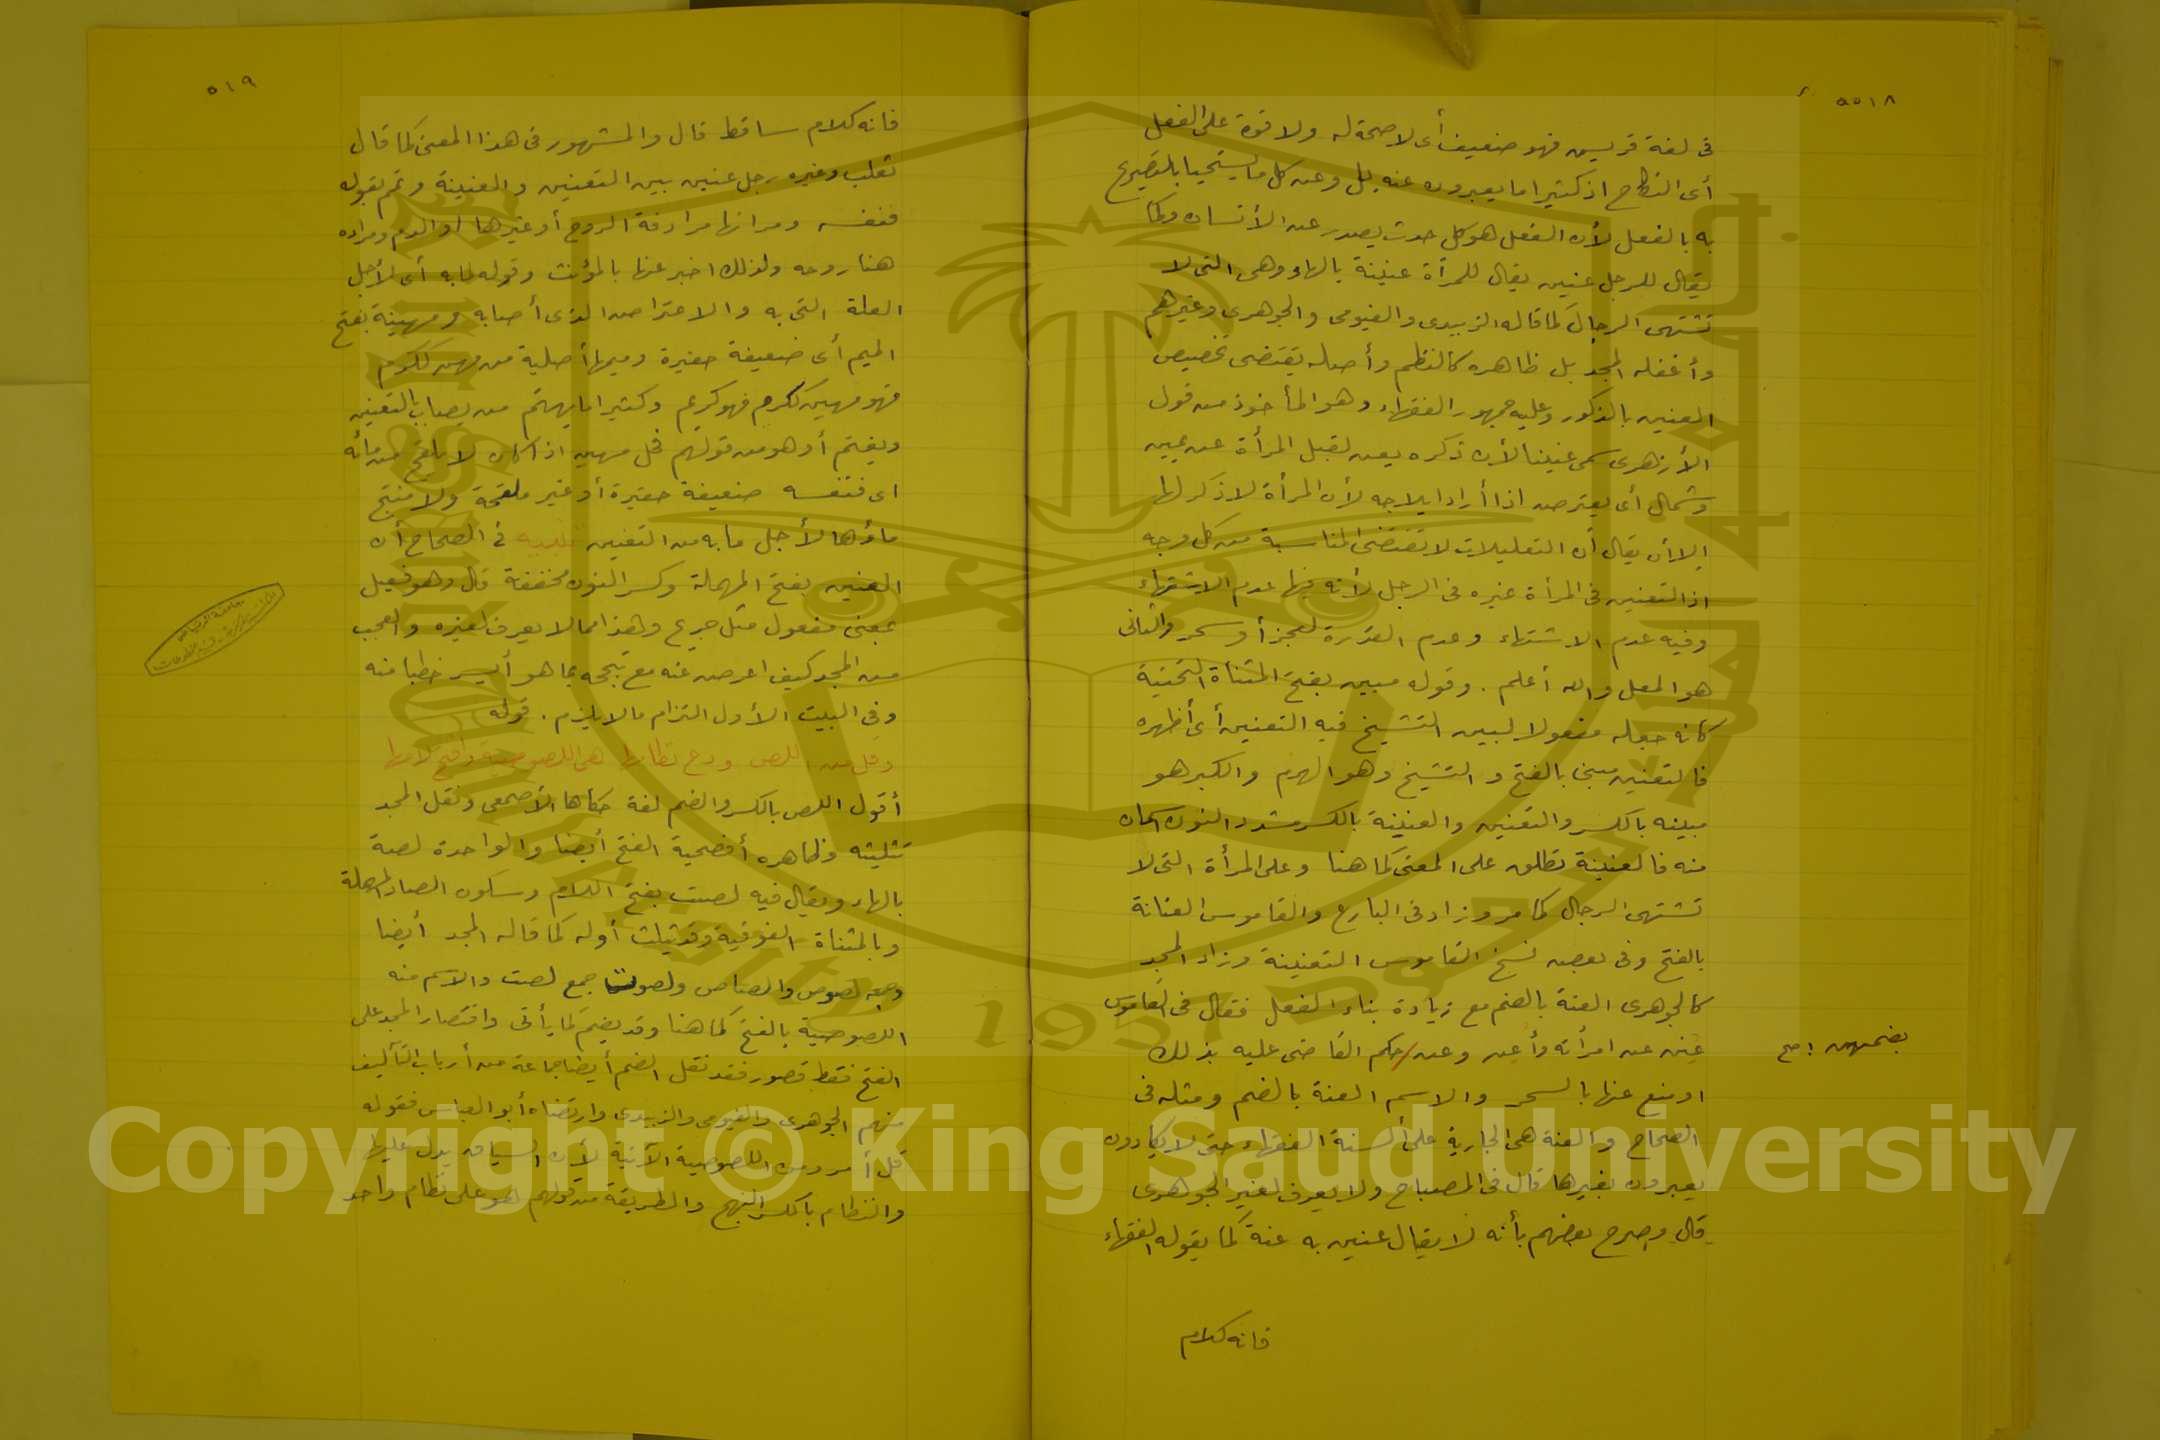 ٥١٨
فى لغة قريس فهو ضعيف أى لا صحة له ولا قوة على الفعل
أى النكاح اذ كثيرا ما يعبرون عنه بل وعن كل ما يستحيا بالتصريح
به بالفعل لأن الفعل هو كل حدث يصدر عن الأنسان وكما
يقال للرجل عنين يقال للمرأة عنينة بالهاء وهى التى لا
تشتهى الرجال كما قاله الزبيدى والفيومى والجوهرى وغيرهم
وأغفله المجد بل ظاهره كالنظم وأصله يقتضى تخصيص
العنين بالذكور وعليه جمهور الفقهاء وهو المأخوذ من قول
الأزهرى سمى عنينا لأن ذكره يعن لقبل المرأة عن يمين
وشمال أى يعترض اذا أراد ايلاجه لأن المرأة لا ذكر لها
الا أن يقال أن التعليلات لا تقتضى المناسبة من كل وجه
اذ التعنين فى المرأة غيره فى الرجل لأنه فيها عدم الاشتهاء
وفيه عدم الاشتهاء وعدم القدرة لعجز أو سحر والثانى
هو المعل والله أعلم . وقوله مبين بفتح المثناة التحتية
كانه جعله مفعولا لبين التشيخ فيه التعنين أى أظهره
فالتعنين مبين بالفتح والتشيخ وهو الهرم والكبر هو
مبينه بالكسر والتعنين والعنينة بالكسر مشدد النون اسمان
منه فالعنينة تطلق على المعنى كما هنا وعلى المرأة التى لا
تشتهى الرجال كما مر وزاد فى البارع والقاموس العنانة
بالفتح وفى بعض نسخ القاموس التعنينة وزاد المجد
كالجوهرى العنة بالضم مع زيادة بناء الفعل فقال فى القاموس
عنن عن امرأته وأعن وعن حكم القاضى عليه بذلك
بضمهن صح
او منع عنها بالسحر والاسم العنة بالضم ومثله فى
الصحاح والعنة هى الجارية على ألسنة الفقهاء حتى لا يكادون
يعبرون بغيرها قال فى المصباح ولا يعرف لغير الجوهرى
قال وصرح بعضهم بأنه لا يقال عنين به عنة كما يقوله الفقهاء
فانه كلام
٥١٩
فانه كلام ساقط قال والمشهور فى هذا المعنى كما قال
ثعلب وغيره رجل عنين بين التعنين والعنينة وتم بقوله
فنفسه ومر انها مرادفة الروح أو غيرها او الدم ومراده
هنا روحه ولذلك اخبر عنها بالمؤنث وقوله لما به أى لأجل
العلة التى به والاعتراض الذى أصابه ومهينة بفتح
الميم أى ضعيفة حقيرة وميمها أصلية من مهن ككرم
فهو مهين ككرم فهو كريم وكثيرا ما يهتم من يصاب بالتعنين
ويغتم أو هو من قولهم فحل مهين اذا كان لا يلقح من مائه
اى فنفسه ضعيفة حقيرة أو غير ملقحة ولا منتج
ماؤها لأجل ما به من التعنين تنبيه فى الصحاح أن
العنين بفتح المهملة وكسر النون مخففة قال وهو فعيل
بمعنى مفعول مثل جريح وهذا مما لا يعرف لغيره والعجب
من المجد كيف اعرض عنه مع تبجحه بما هو أيسر خطبا منه
وفى البيت الأول التزام ما لا يلزم . قوله
وقل من اللص ودع نظامها هى اللصوصية وافتح لامها
أقول اللص بالكسر والضم لغة حكاها الأصمعى ونقل المجد
تثليثه وظاهره أفصحية الفتح أيضا والواحدة لصة
بالهاء ويقال فيه لصت بفتح اللام وسكون الصاد المهملة
وبالمثناة الفوقية وقد تثلث أوله كما قاله المجد أيضا
وجمعه لصوص والصاص ولصوت جمع لصت والاسم منه
اللصوصية بالفتح كما هنا وقد يضم كما يأتى واقتصار المجد على
الفتح فقط قصور فقد نقل الضم أيضا جماعة من أرباب التآليف
منهم الجوهرى والفيومى والزبيدى وارتضاه أبو العباس فقوله
قل أمر ومن اللصوصية الآتية لأن السياق يدل عليها
والنظام بالكسر النهج والطريقة من قولهم هو على نظام واحد
1957
Copyright © King Saud University